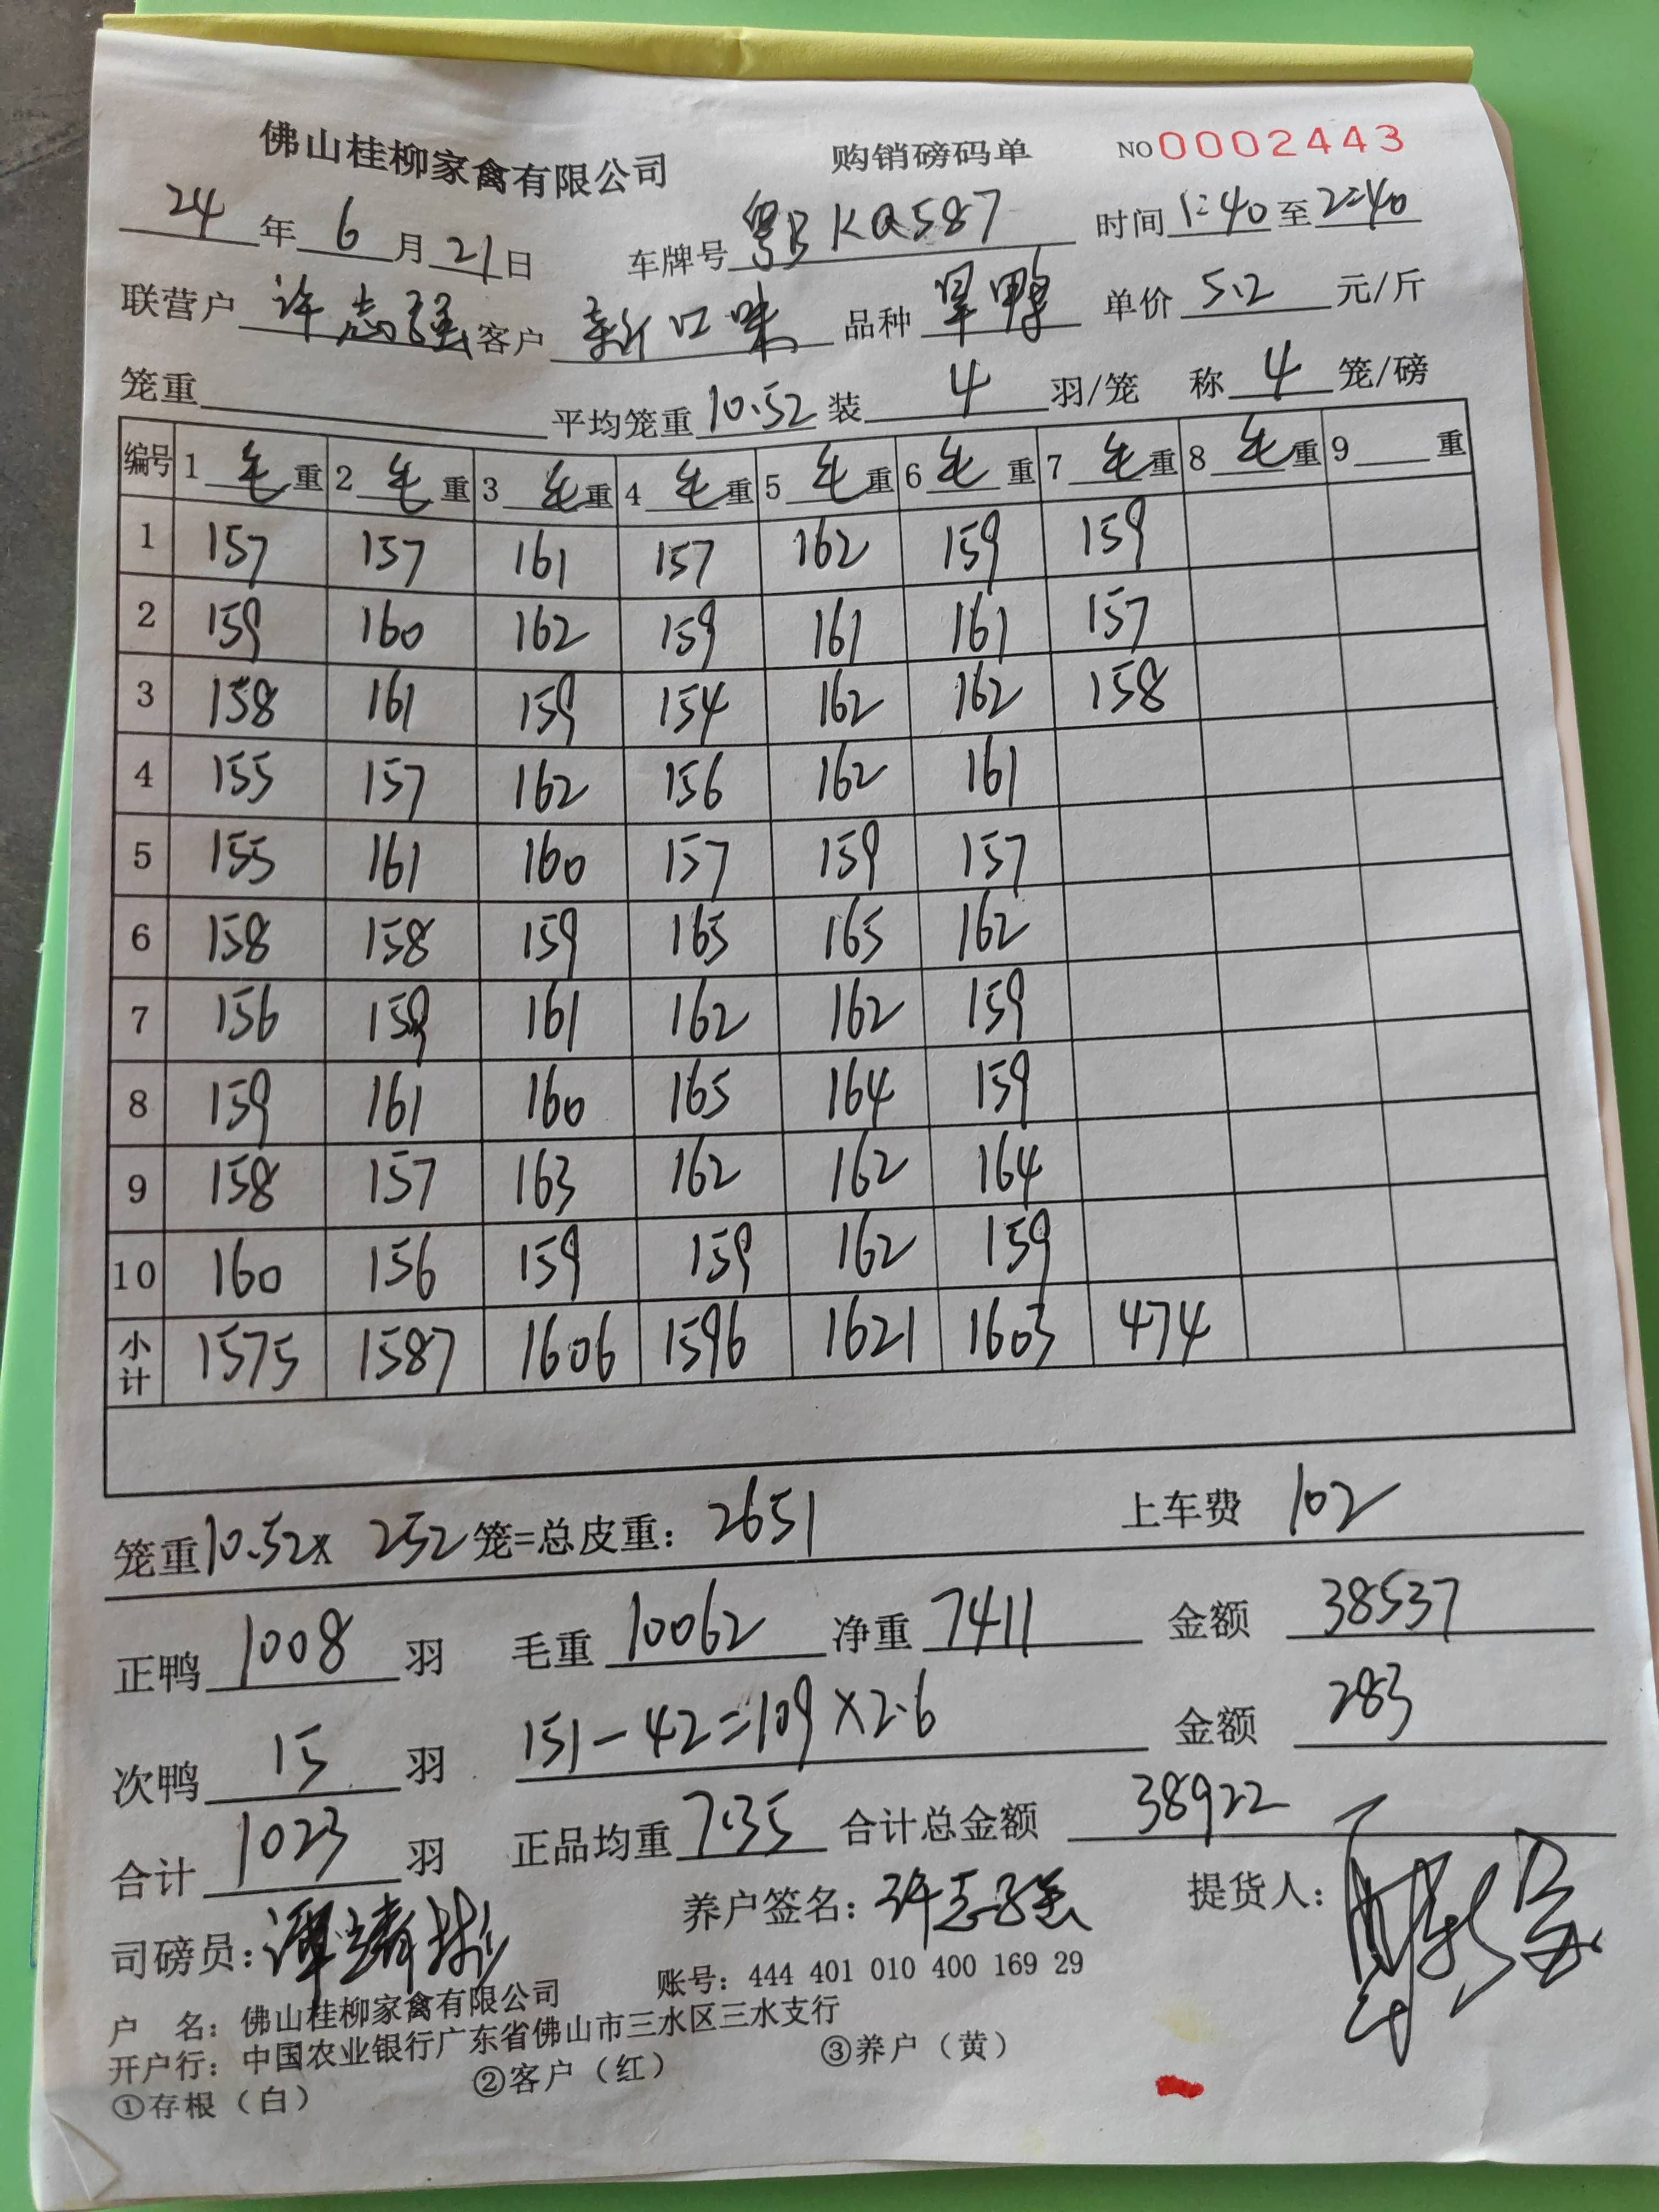 佛山桂柳家禽有限公司 购销磅码单 NO 0002443
24年6月21日 车牌号粤BKQ587 时间1:40至2:40
联营户许志强客户新口味品种旱鸭单价5.2元/斤
笼重 平均笼重10.52装4羽/笼 称4笼/磅
编号 1毛重 2毛重 3毛重 4毛重 5毛重 6毛重 7毛重 8毛重 9重
1 157 157 161 157 162 159 159
2 159 160 162 159 161 161 157
3 158 161 159 154 162 162 158
4 155 157 162 156 162 161
5 155 161 160 157 159 157
6 158 158 159 165 165 162
7 156 159 161 162 162 159
8 159 161 160 165 164 159
9 158 157 163 162 162 164
10 160 156 159 159 162 159
小计 1575 1587 1606 1596 1621 1603 474
笼重10.52x 252笼=总皮重：2651 上车费 102
正鸭1008羽 毛重10062净重7411 金额38537
次鸭15羽 151-42=109×2.6 金额283
合计1023羽 正品均重7.35合计总金额38922
司磅员： 养户签名：许志强 提货人：
户 名：佛山桂柳家禽有限公司 账号：444 401 010 400 169 29
开户行：中国农业银行广东省佛山市三水区三水支行
①存根（白） ②客户（红） ③养户（黄）